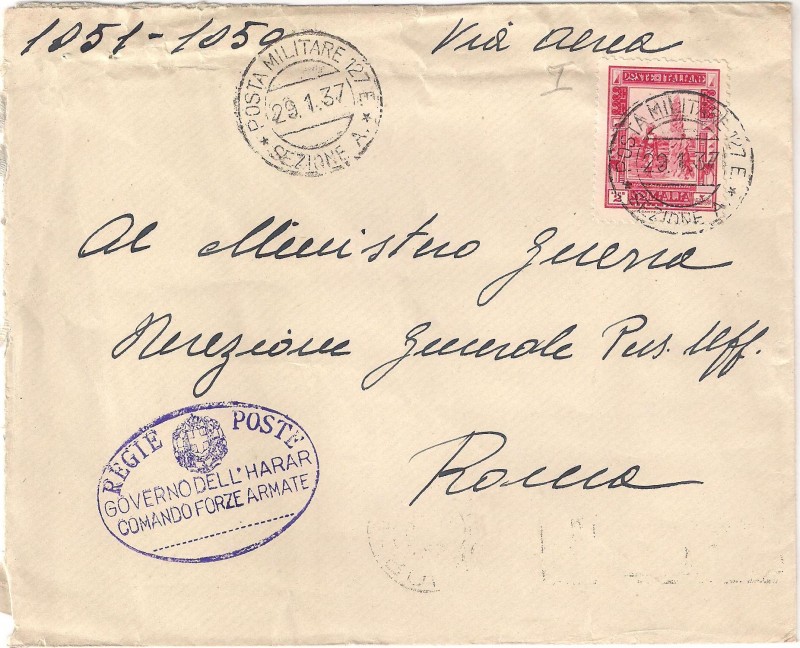 1051-1050
Via aerea
I
POSTA MILITARE 127 E.
29.1.37
* SEZIONE A. *
POSTE ITALIANE
SOMALIA
POSTA MILITARE 127 E.
29.1.37
* SEZIONE A. *
Al Ministero Guerra
Direzione Generale Pers. Uff.
Roma
REGIE POSTE
GOVERNO DELL'HARAR
COMANDO FORZE ARMATE